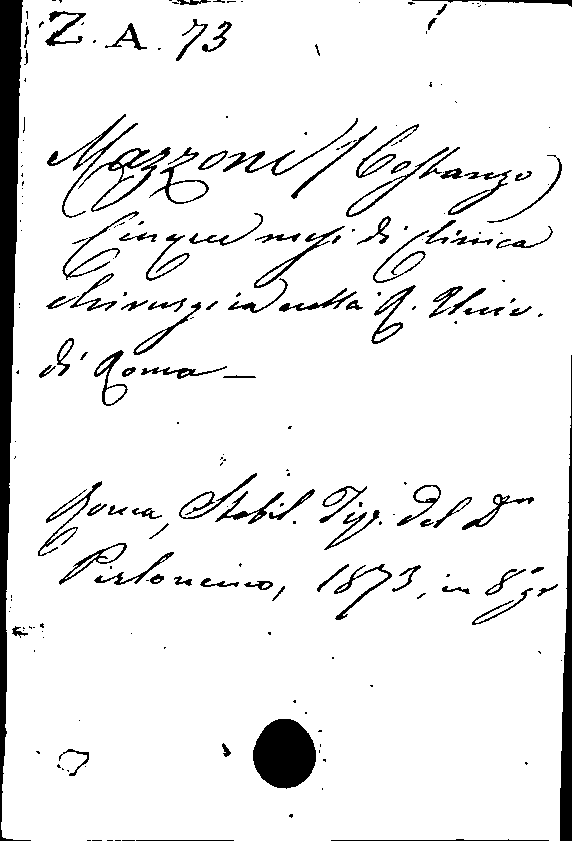 Z. A. 73
Mazzoni (Costanzo)
Cinque mesi di clinica
chirurgica nella R. Univ.
di Roma —
Roma, Stabil. Tip. del
1873, in 8° gr